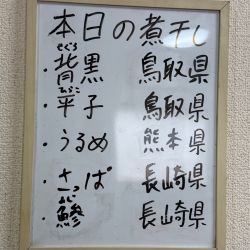 本日の煮干し
・背黒 せぐろ 鳥取県
・平子 ひらこ 鳥取県
・うるめ 熊本県
・さば 長崎県
・鯵 あじ 長崎県